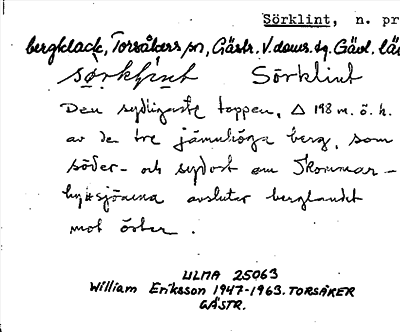 Sörklint, n. pr
bergklack, Torsåkers sn, Gästr. V. doms. tg. Gävl. lä
Sörklint
Den sydligaste toppen, △ 198 m. ö. h.
av de tre jämnhöga berg, som
söder- och sydost om Skommar-
hyttsjöarna avsluter berglandet
mot öster.
ULMA 25063
William Eriksson 1947-1963. TORSÅKER
GÄSTR.